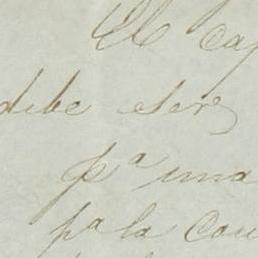 El cap
debe ser
pª una
pª la Cau